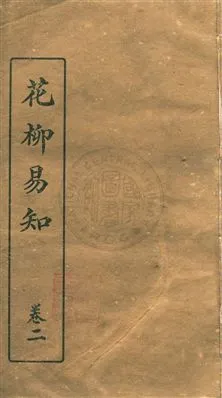 花柳易知
卷二